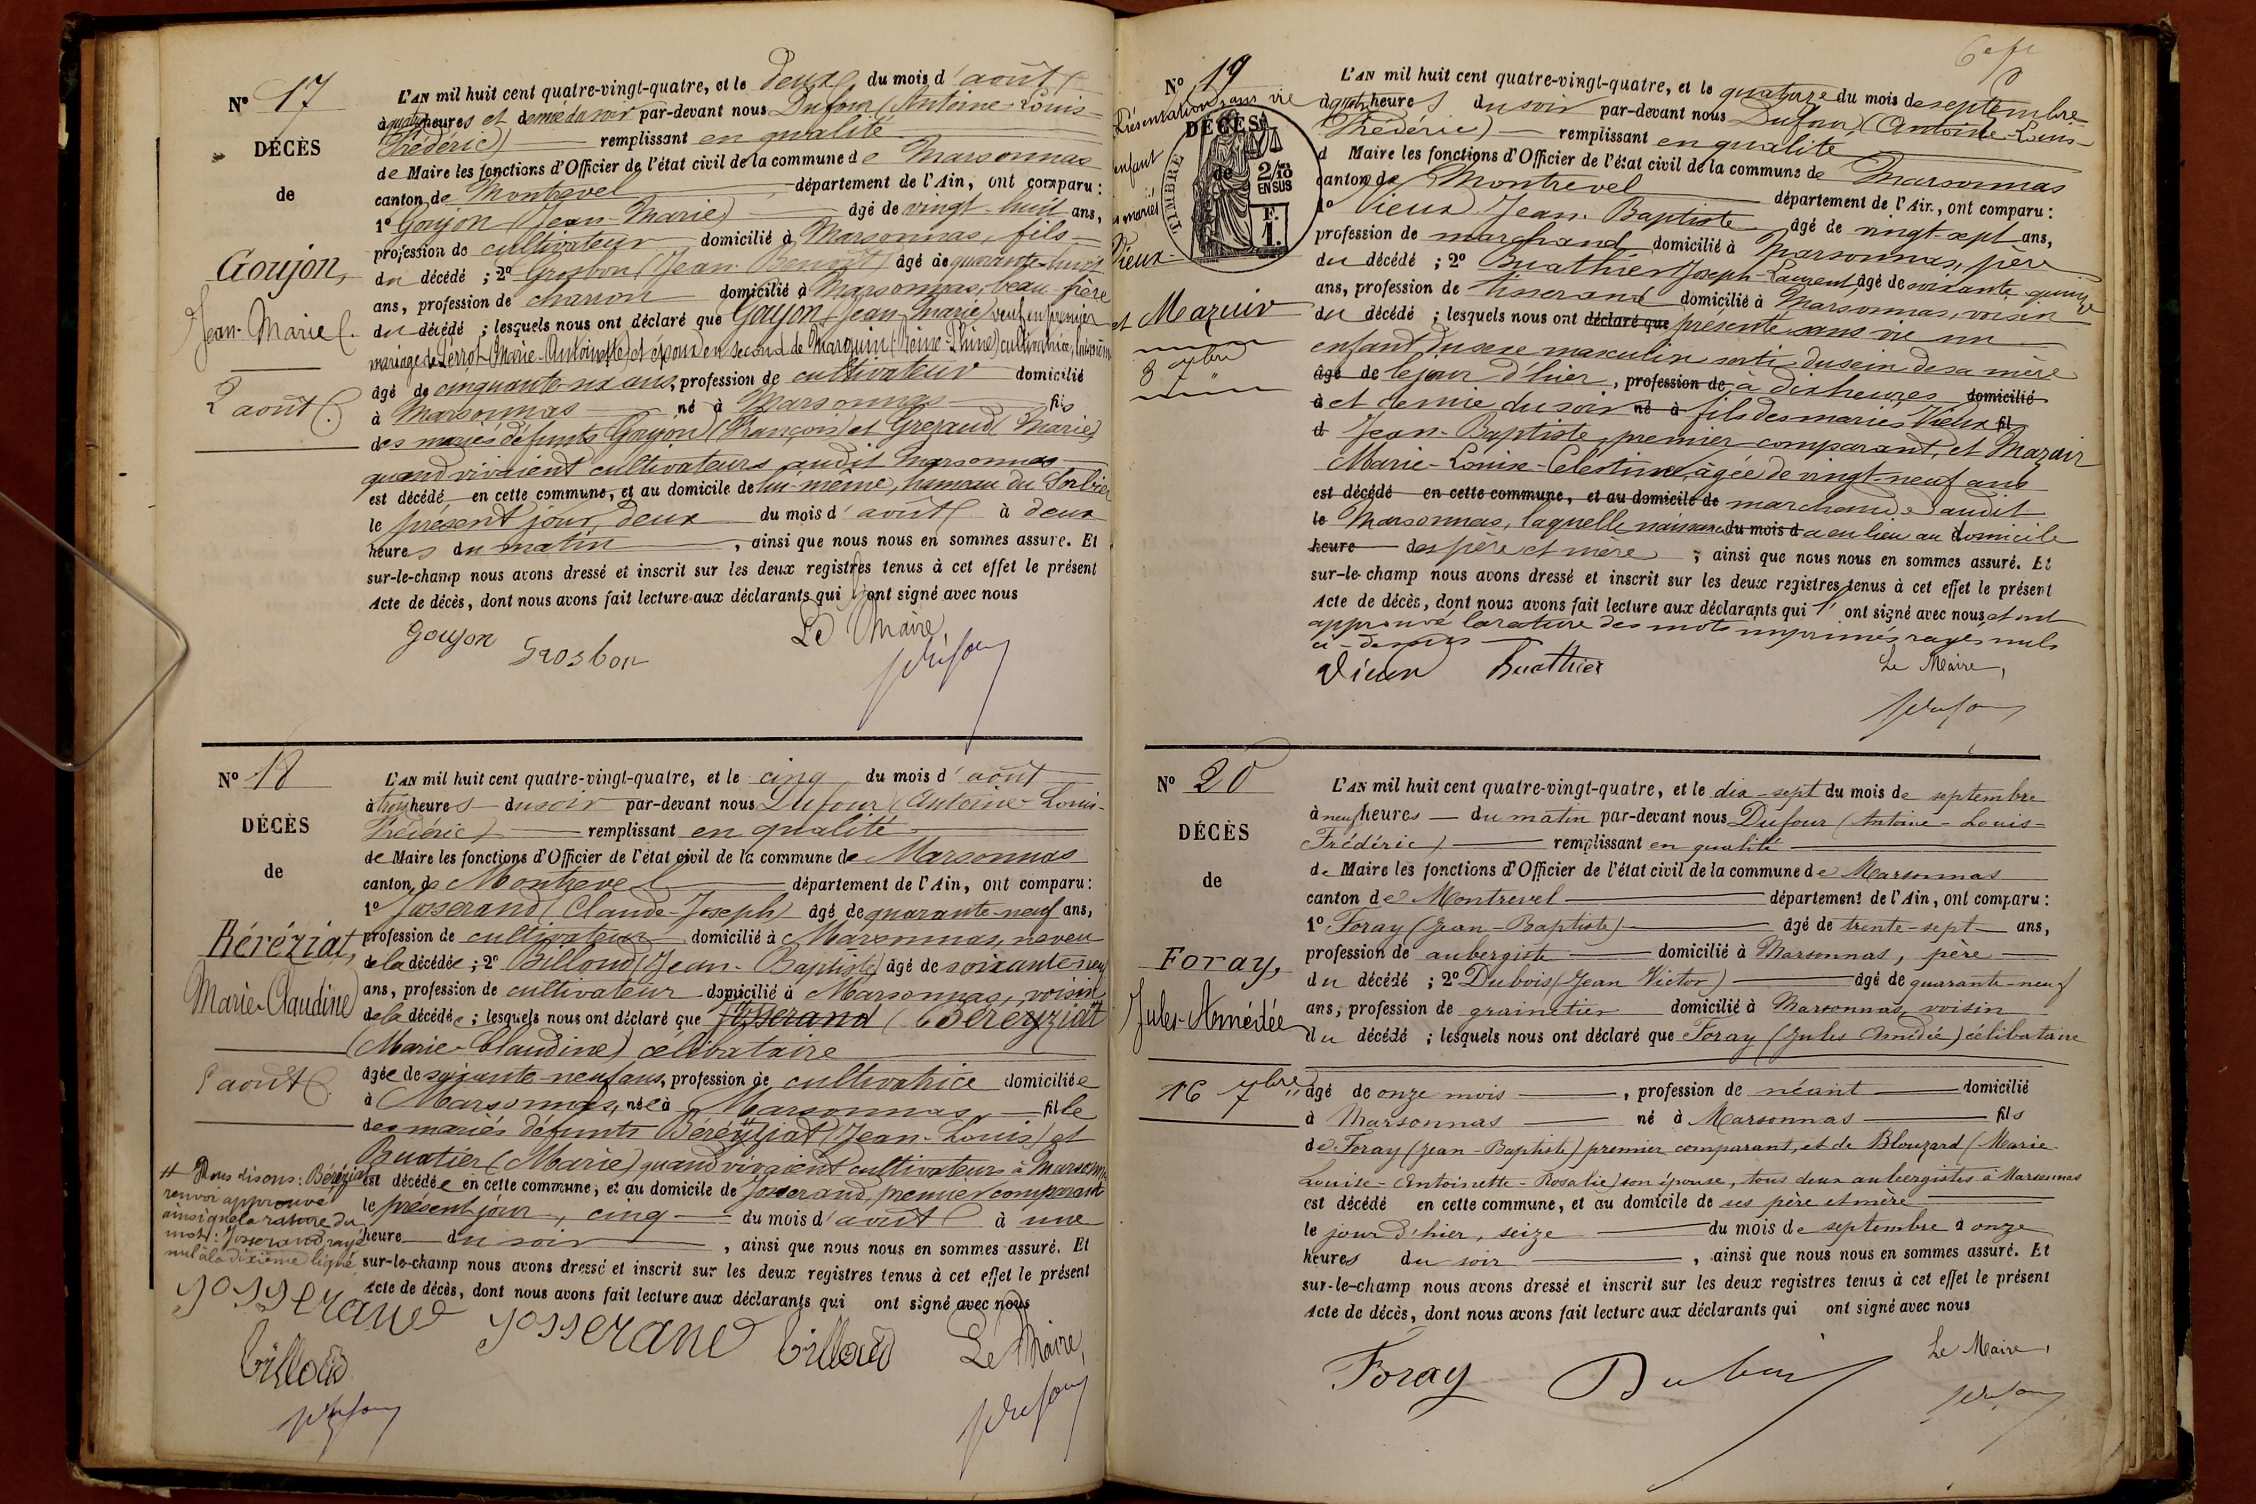 N° 17
DÉCÈS
de
Goujon,
Jean-Marie
2 août
L'AN mil huit cent quatre-vingt-quatre, et le deux du mois d'août
à quatre heures et demie du soir par-devant nous Dufour (Antoine-Louis-
Frédéric) remplissant en qualité
de Maire les fonctions d'Officier de l'état civil de la commune de Marsonnas
canton de Montrevel département de l'Ain, ont comparu :
1° Goujon (Jean-Marie) âgé de vingt-huit ans,
profession de cultivateur domicilié à Marsonnas, fils
du décédé ; 2° Grosbon (Jean-Benoit) âgé de quarante-huit
ans, profession de charron domicilié à Marsonnas, beau-frère
du décédé ; lesquels nous ont déclaré que Goujon (Jean Marie) veuf en premier
mariage de Perrot (Marie-Antoinette) et époux en second de Marguin (Reine-Phine) cultivatrice,
âgé de cinquante-six ans, profession de cultivateur domicilié
à Marsonnas né à Marsonnas fils
des mariés défunts Goujon (François) et Grezaud (Marie)
quand vivaient cultivateurs audit Marsonnas
est décédé en cette commune, et au domicile de lui-même, hameau du Sorbier
le présent jour, deux du mois d'août à deux
heures du matin, ainsi que nous nous en sommes assuré. Et
sur-le-champ nous avons dressé et inscrit sur les deux registres tenus à cet effet le présent
Acte de décès, dont nous avons fait lecture aux déclarants qui l'ont signé avec nous
Goujon Grosbon Le Maire,
Dufour
N° 18
DÉCÈS
de
Béréziat,
Marie-Claudine
5 août
L'AN mil huit cent quatre-vingt-quatre, et le cinq du mois d'août
à trois heures du soir par-devant nous Dufour (Antoine-Louis-
Frédéric) remplissant en qualité
de Maire les fonctions d'Officier de l'état civil de la commune de Marsonnas
canton de Montrevel département de l'Ain, ont comparu :
1° Josserand (Claude-Joseph) âgé de quarante-neuf ans,
profession de cultivateur domicilié à Marsonnas, neveu
de la décédée ; 2° Billoud (Jean-Baptiste) âgé de soixante-neuf
ans, profession de cultivateur domicilié à Marsonnas, voisin
de la décédée ; lesquels nous ont déclaré que Josserand (Béreyziat
(Marie-Claudine) célibataire
âgée de soixante-neuf ans, profession de cultivatrice domiciliée
à Marsonnas, née à Marsonnas, fille
des mariés défunts Béréyziat (Jean-Louis) et
Buatier (Marie) quand vivaient cultivateurs à Marsonnas
est décédée en cette commune, et au domicile de Josserand, premier comparant
le présent jour, cinq du mois d'août à une
heure du soir, ainsi que nous nous en sommes assuré. Et
sur-le-champ nous avons dressé et inscrit sur les deux registres tenus à cet effet le présent
Acte de décès, dont nous avons fait lecture aux déclarants qui ont signé avec nous
Nous disons : Béréziat
renvoi approuvé
ainsi que la rature du
mot : Josserand rayé
nul à la dixième ligne
Josserand Josserand Billoud Le Maire,
Billoud
Dufour Dufour
N° 19
Présentation sans vie
DÉCÈS
de
TIMBRE
2/10 EN SUS
F. 1.
enfant
mariés
Vieux
et Mazuir
8 7bre
L'AN mil huit cent quatre-vingt-quatre, et le quatorze du mois de septembre
à quatre heures du soir par-devant nous Dufour (Antoine-Louis-
Frédéric) remplissant en qualité
d Maire les fonctions d'Officier de l'état civil de la commune de Marsonnas
canton de Montrevel département de l'Ain, ont comparu :
1° Vieux Jean-Baptiste âgé de vingt-sept ans,
profession de marchand domicilié à Marsonnas, père
du décédé ; 2° Buathier Joseph-Laurent âgé de soixante-quinze
ans, profession de tisserand domicilié à Marsonnas, voisin
du décédé ; lesquels nous ont déclaré que présenté sans vie un
enfant du sexe masculin sorti du sein de sa mère
âgé de le jour d'hier, profession de à dix heures domicilié
à et demie du soir né à fils des mariés Vieux fil
d Jean-Baptiste, premier comparant, et Mazuir
Marie-Louise-Celestine, âgée de vingt-neuf ans
est décédé en cette commune, et au domicile de marchands audit
le Marsonnas, laquelle naissance du mois d a eu lieu au domicile
heure des père et mère ; ainsi que nous nous en sommes assuré. Et
sur-le-champ nous avons dressé et inscrit sur les deux registres tenus à cet effet le présent
Acte de décès, dont nous avons fait lecture aux déclarants qui l'ont signé avec nous et ont
approuvé la rature des mots imprimés rayés nuls
ci-dessus
Vieux Buathier Le Maire,
Dufour
N° 20
DÉCÈS
de
Foray,
Jules-Amédée
16 7bre
L'AN mil huit cent quatre-vingt-quatre, et le dix-sept du mois de septembre
à neuf heures du matin par-devant nous Dufour (Antoine-Louis-
Frédéric) remplissant en qualité
de Maire les fonctions d'Officier de l'état civil de la commune de Marsonnas
canton de Montrevel département de l'Ain, ont comparu :
1° Foray (Jean-Baptiste) âgé de trente-sept ans,
profession de aubergiste domicilié à Marsonnas, père
du décédé ; 2° Dubois (Jean Victor) âgé de quarante-neuf
ans, profession de grainetier domicilié à Marsonnas, voisin
du décédé ; lesquels nous ont déclaré que Foray (Jules Amédée) célibataire
âgé de onze mois, profession de néant domicilié
à Marsonnas né à Marsonnas fils
de Foray (Jean-Baptiste) premier comparant, et de Blouzard (Marie-
Louise-Antoinette-Rosalie) son épouse, tous deux aubergistes à Marsonnas
est décédé en cette commune, et au domicile de ses père et mère
le jour d'hier, seize du mois de septembre à onze
heures du soir, ainsi que nous nous en sommes assuré. Et
sur-le-champ nous avons dressé et inscrit sur les deux registres tenus à cet effet le présent
Acte de décès, dont nous avons fait lecture aux déclarants qui ont signé avec nous
Foray Dubois Le Maire,
Dufour